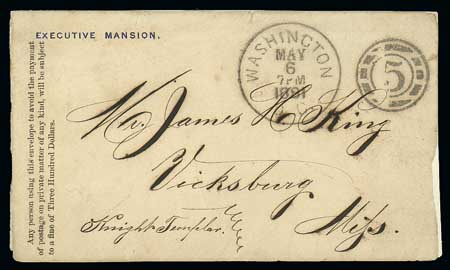 EXECUTIVE MANSION.
WASHINGTON
MAY
6
7PM
1881
D.C.
5
Mr. James H. King
Vicksburg
Miss.
Knight Templar.
Any person using this envelope to avoid the payment
of postage on private matter of any kind, will be subject
to a fine of Three Hundred Dollars.